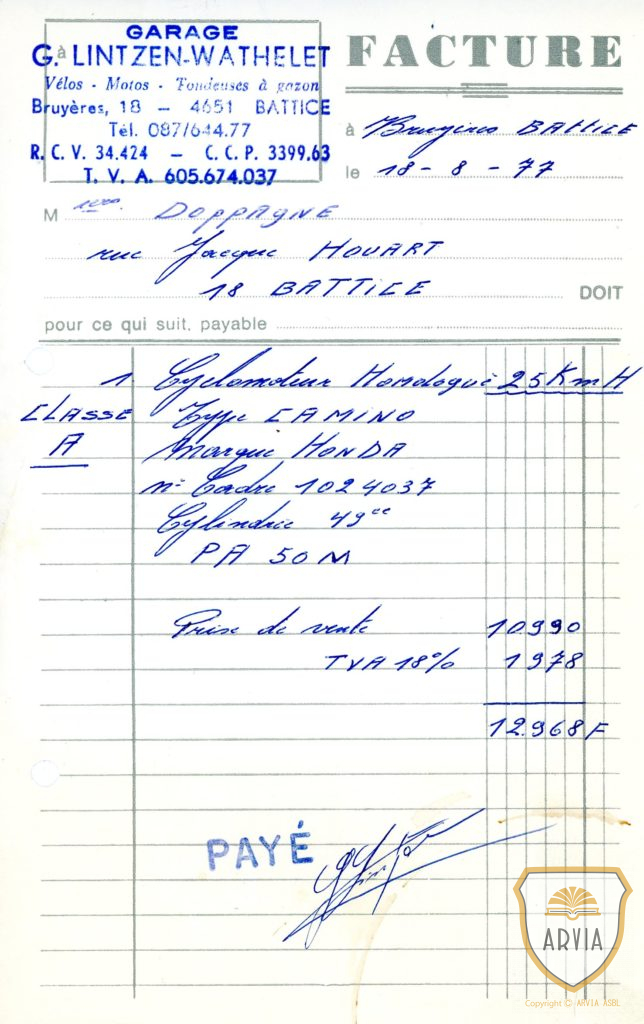 GARAGE
à
G. LINTZEN-WATHELET
Vélos - Motos - Tondeuses à gazon
Bruyères, 18 — 4651 BATTICE
Tél. 087/644.77
R. C. V. 34.424 — C. C. P. 3399.63
T. V. A. 605.674.037
FACTURE
à Bruyères BATTICE
le 18 - 8 - 77
M DOPPAGNE
rue Jacque HOUART
18 BATTICE DOIT
pour ce qui suit, payable
1 Cyclomoteur Homologué 25 Km H
CLASSE Type CAMINO
A Marque HONDA
n° Cadre 1024037
Cylindrée 49cc
PA 50 M
Prix de vente 10990
TVA 18% 1978
12.968 F
PAYÉ
ARVIA
Copyright © ARVIA ASBL